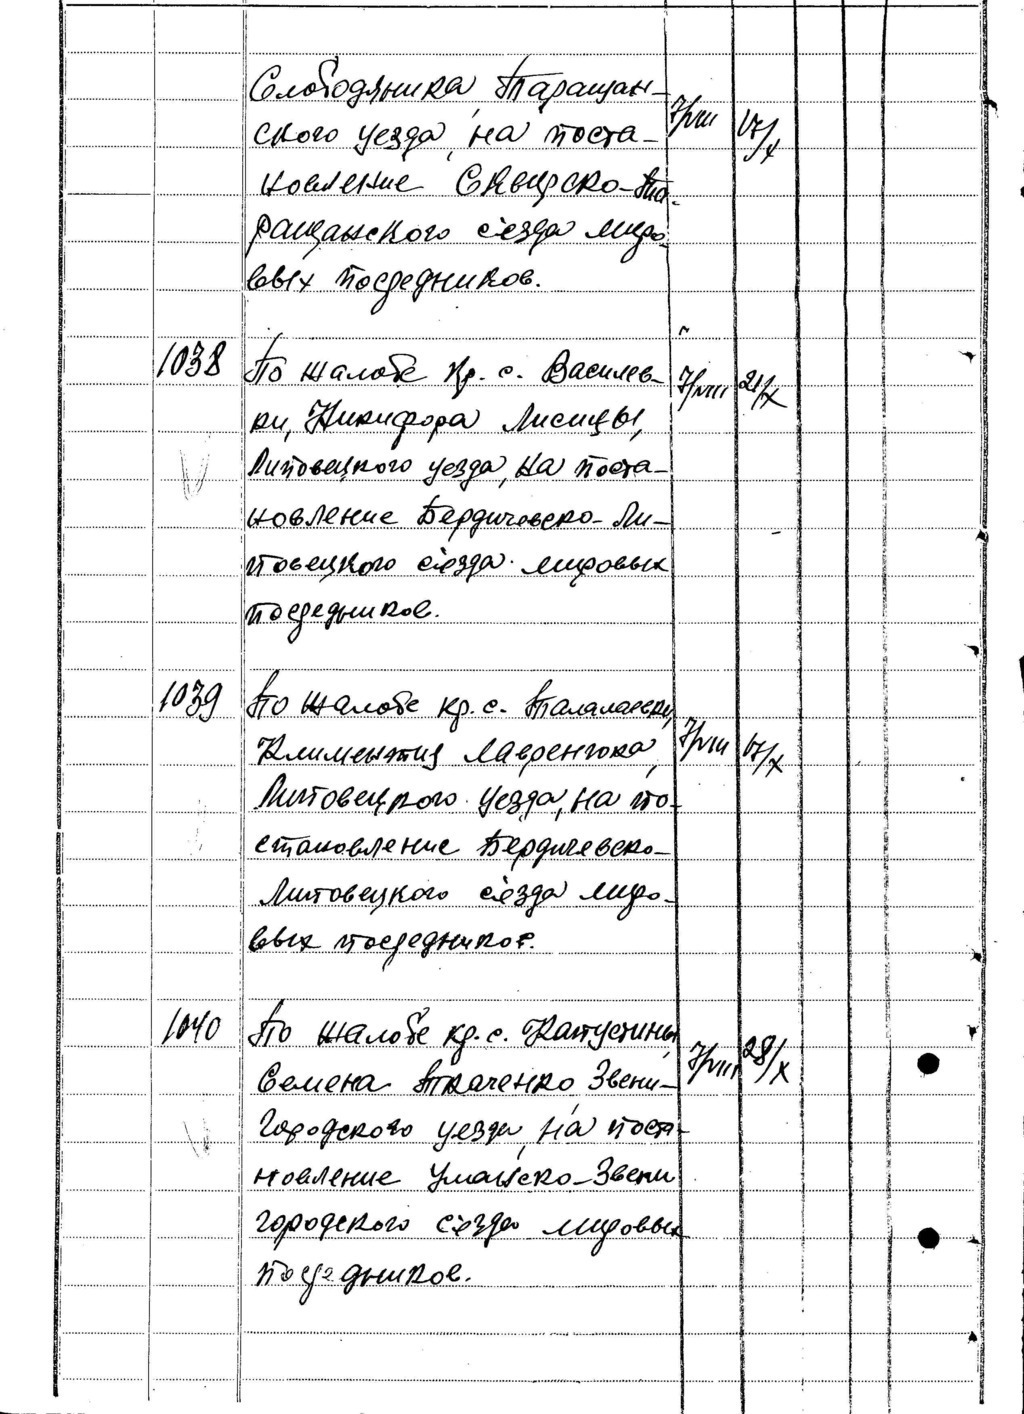 Слободяника, Таращан-
ского уезда, на поста- 7/VIII 17/X
новление Сквирско-Та-
ращанского съезда миро-
вых посредников.
1038 По жалобе кр. с. Василев- 7/VIII 21/X
ки, Никифора Лисицы,
Липовецкого уезда, на поста-
новление Бердичевско-Ли-
повецкого съезда мировых
посредников.
1039 По жалобе кр. с. Талалаевки,
Климентия Лавренюка, 7/VIII 17/X
Липовецкого уезда, на по-
становление Бердичевско-
Липовецкого съезда миро-
вых посредников.
1040 По жалобе кр. с. Капустины, 7/VIII 28/X
Семена Ткаченко, Звени-
городского уезда, на поста-
новление Уманско-Звени
городского съезда мировых
посредников.